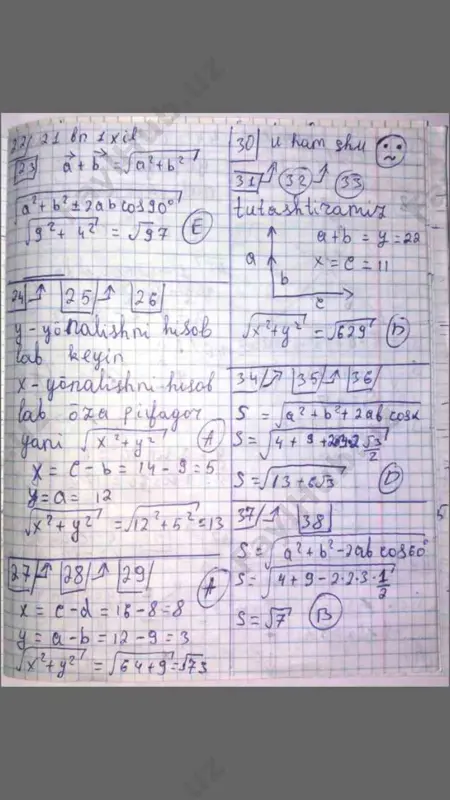 22/ 21 bn 1 xil
23 a + b = √a² + b²
√a² + b² ± 2ab cos90°
√9² + 4² = √97 E
24 25 26
y - yönalishni hisob
lab keyin
x - yönalishni hisob
lab öza pifagor
yani √x² + y² A
x = c - b = 14 - 9 = 5
y = a = 12
√x² + y² = √12² + 5² = 13
27 28 29 A
x = c - d = 16 - 8 = 8
y = a - b = 12 - 9 = 3
√x² + y² = √64 + 9 = √73
30 u ham shu
31 32 33
tutashtiramiz
a + b = y = 22
a x = c = 11
b
c
√x² + y² = √629 D
34 35 36
S = √a² + b² + 2ab cosα
S = √4 + 9 + 2·3·2 √3/2
S = √13 + 6√3 D
37 38
S = √a² + b² - 2ab cos60°
S = √4 + 9 - 2·2·3·1/2
S = √7 B
5